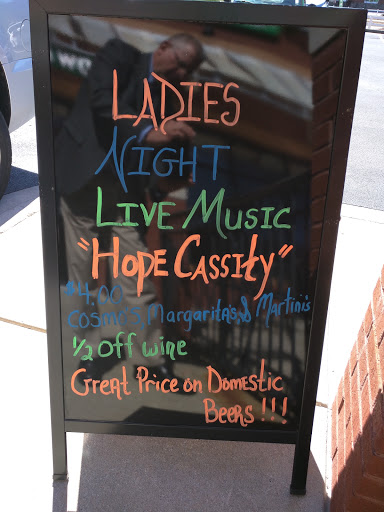 LADIES
NIGHT
LIVE MUSIC
"HOPE CASSITY"
$4.00
Cosmo's, Margaritas, & Martinis
1/2 off wine
Great Price on Domestic
Beers!!!